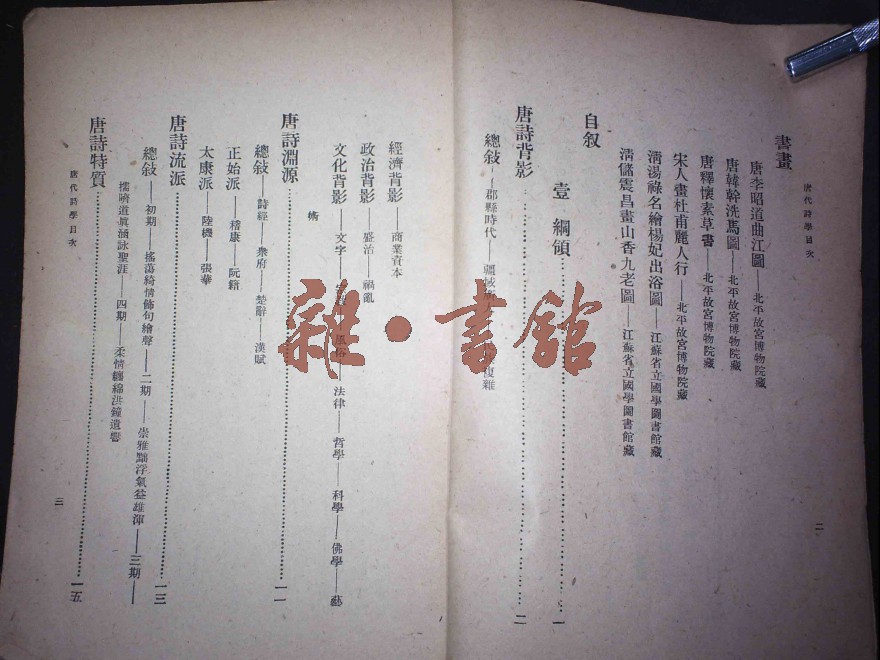 唐代詩學目次
書畫
唐李昭道曲江圖——北平故宮博物院藏
唐韓幹洗馬圖——北平故宮博物院藏
唐釋懷素草書——北平故宮博物院藏
宋人畫杜甫麗人行——北平故宮博物院藏
清湯祿名繪楊妃出浴圖——江蘇省立國學圖書館藏
清儲震昌畫山香九老圖——江蘇省立國學圖書館藏
自叙
壹 綱領……一
唐詩背影……二
總敍——郡縣時代——疆域 複雜
二
經濟背影——商業資本
政治背影——盛治——禍亂
文化背影——文字 風俗——法律——哲學——科學——佛學——藝
術
唐詩淵源……一一
總敍——詩經——樂府——楚辭——漢賦
正始派——嵇康——阮籍
太康派——陸機——張華
唐詩流派……一三
總敍——初期——搖蕩綺情飾句繪聲——二期——崇雅黜浮氣益雄渾——三期——
擩嚌道眞涵詠聖涯——四期——柔情纏綿洪鐘遺響
唐詩特質……一五
唐代詩學目次
三
雜·書館